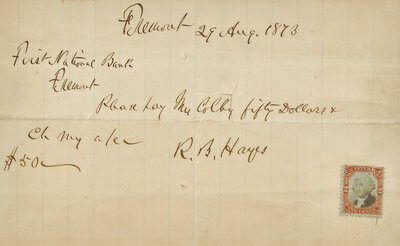 Fremont 29 Aug. 1873
First National Bank
Fremont
Please pay Mr Colby fifty Dollars &
Ch my a/c
$50
R. B. Hayes